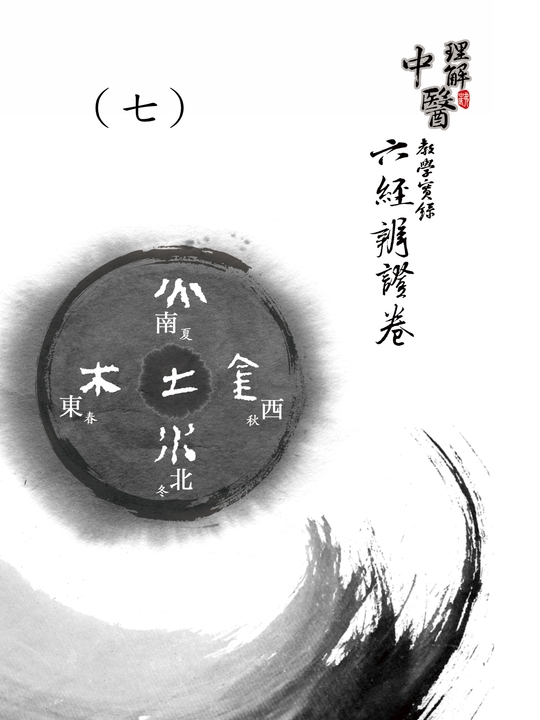 理解
中醫
教學實錄
六經辨證卷
（七）
火
南
夏
木
東
春
土
金
西
秋
水
北
冬